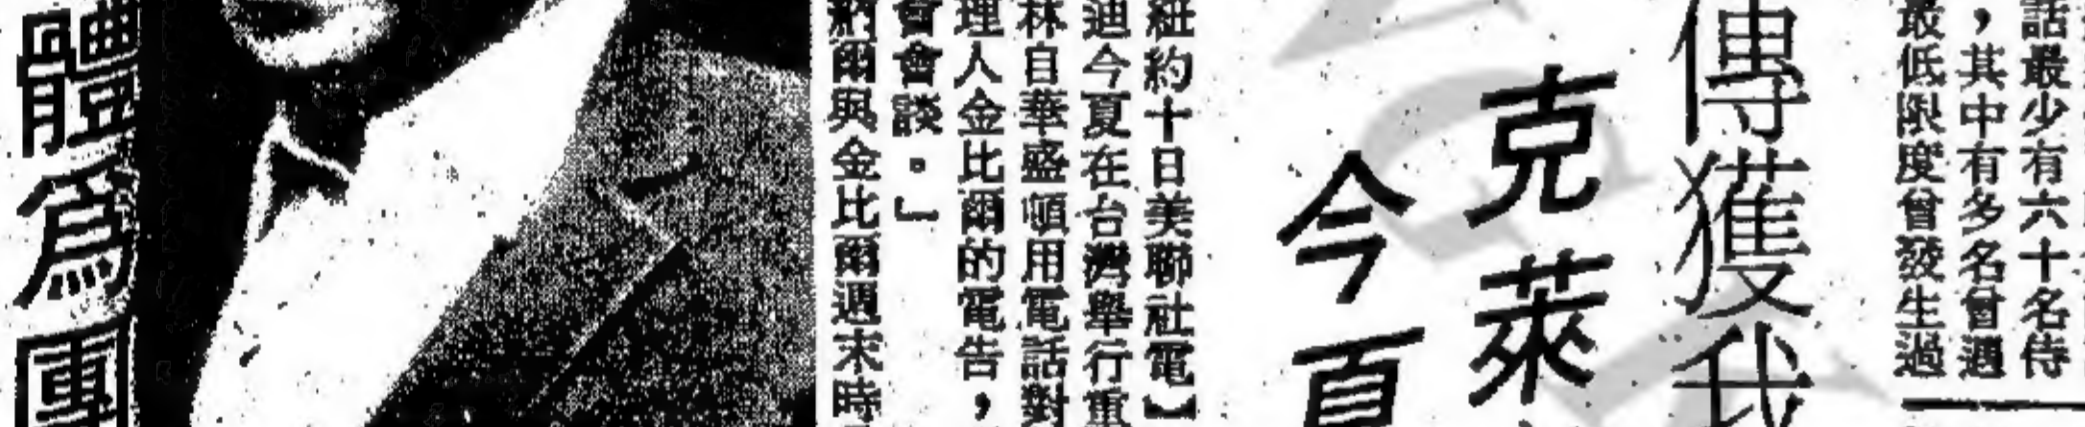 話最少有六十名侍
，其中有多名曾遇
最低限度曾發生過
傳獲我
克萊
今夏
紐約十日美聯社電】
迪今夏在台灣舉行重
林自華盛頓用電話對
理人金比爾的電告，
會會談。」
納爾與金比爾週末時
體為團